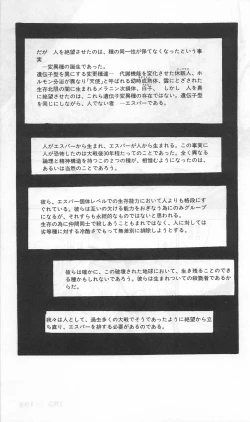 だが 人を絶望させたのは、種の同一性が保てなくなったという事
実
―変異種の誕生であった。
遺伝子型を異にする変更種達― 代謝機能を変化させた休眠人、ホ
ルモン分泌が異なり「天使」と呼ばれる
生存北限の闇に生まれるメラニン欠損体、白子、 しかし 人を真
に絶望させたのは、これら遺伝子変異種の存在ではない。遺伝子型
を同じにしながら、人でない者 ―エスパーである。
人がエスパーから生まれ、エスパーが人から生まれる。この事実に
人が恐怖したのは大戦後30年経たってのことであった。全く異なる
論理と精神構造を持つこの2つの種が、相憎むようになったのは、
あるいは当然のことであろう。
彼ら、エスパー個体レベルでの生存能力において人よりも格段にす
ぐれている。彼らは互いの欠ける能力をおぎなう為にのみグループ
になるが、それすらも永続的なものではないと思われる。
生存の為に仲間同士で殺しあうこともまれではなく、人に対しては
劣等種に対する冷酷さでもって無差別に排除しようとする。
彼らは確かに、この破壊された地球において、生き残ることのでき
る種かもしれないであろう。彼らは生まれついての殺戮者であるか
らだ。
我々は人として、過去多くの大戦でそうであったように絶望から立
ち直り、エスパーを排する必要があるのである。